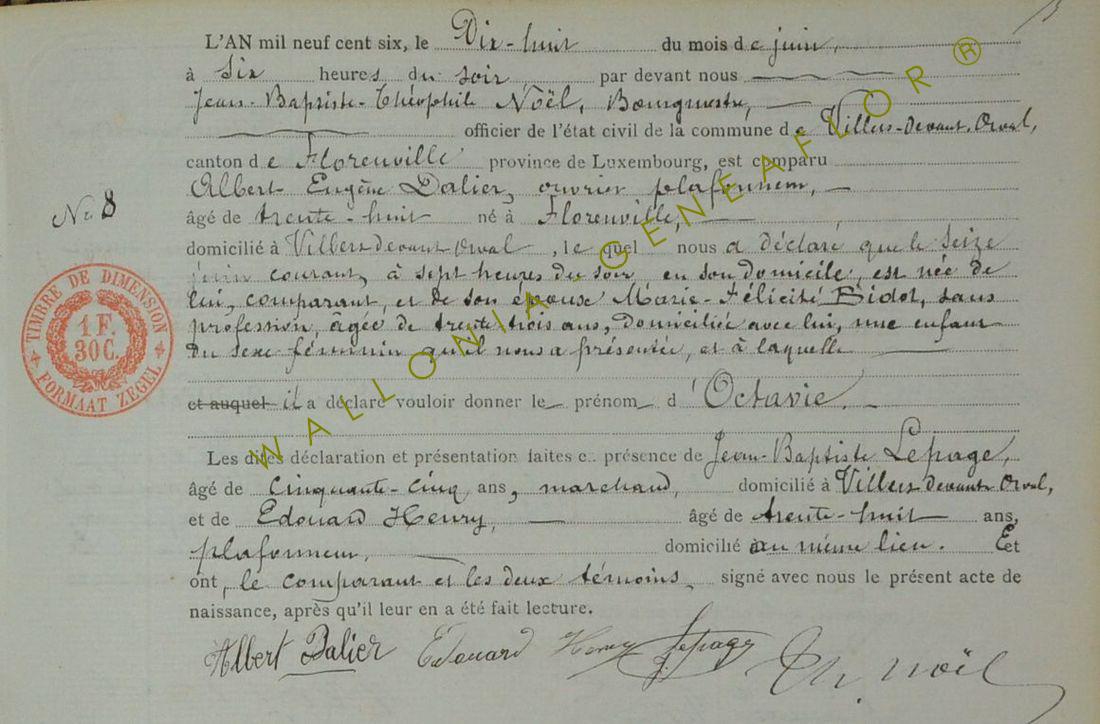 L'AN mil neuf cent six, le Dix-huit du mois de juin,
à six heures du soir par devant nous
Jean-Baptiste-Théophile Noël, Bourgmestre,
officier de l'état civil de la commune de Villers-devant-Orval,
canton de Florenville province de Luxembourg, est comparu
Albert Eugène Dalier, ouvrier plafonneur,
No 8
âgé de trente-huit né à Florenville,
domicilié à Villers devant Orval, lequel nous a déclaré que le seize
juin courant, à sept heures du soir, en son domicile, est née de
lui, comparant, et de son épouse Marie-Félicité Bidot, sans
profession, âgée de trente trois ans, domiciliée avec lui, une enfant
du sexe féminin qu'il nous a présentée, et à laquelle
et auquel il a déclaré vouloir donner le prénom d'Octavie.
Les dites déclaration et présentation faites e. présence de Jean-Baptiste Lepage,
âgé de cinquante-cinq ans, marchand, domicilié à Villers devant Orval,
et de Edouard Henry, âgé de trente-huit ans,
plafonneur, domicilié au même lieu. Et
ont, le comparant et les deux témoins, signé avec nous le présent acte de
naissance, après qu'il leur en a été fait lecture.
Albert Dalier Edouard Henry J. Lepage Th. Noël
TIMBRE DE DIMENSION
1 F.
30 C.
FORMAAT ZEGEL
WALLONNIA-GENEAFLOR ®